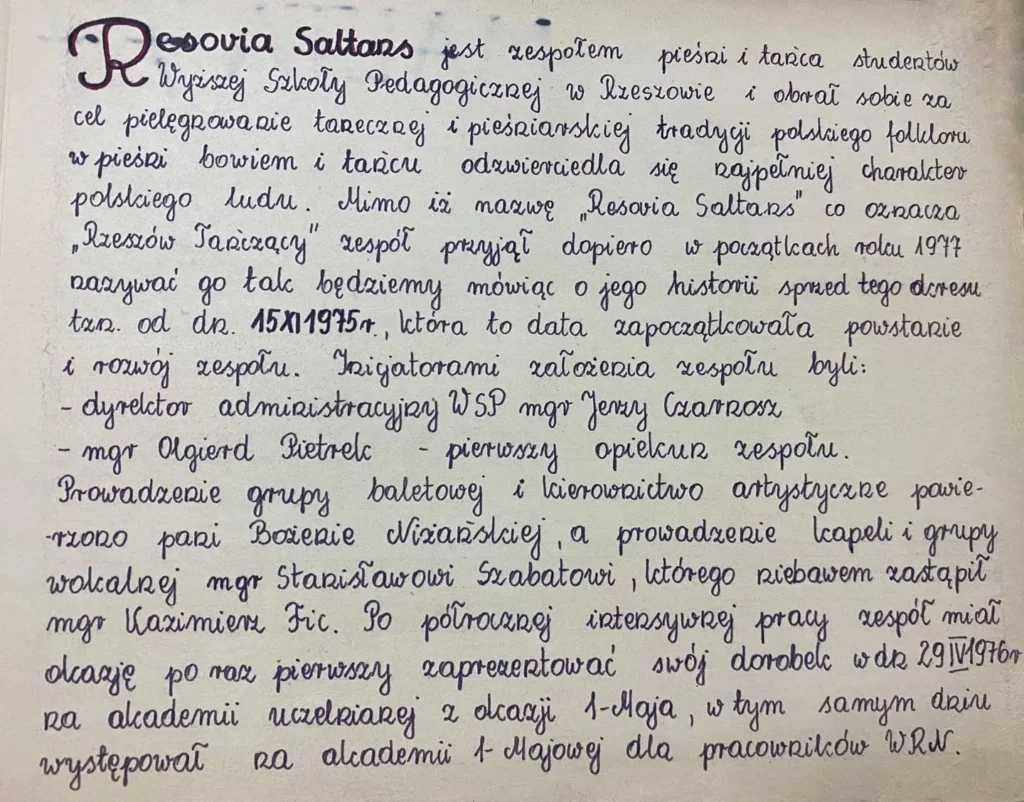 Resovia Saltans jest zespołem pieśni i tańca studentów
Wyższej Szkoły Pedagogicznej w Rzeszowie i obrał sobie za
cel pielęgnowanie tanecznej i pieśniarskiej tradycji polskiego folkloru
w pieśni bowiem i tańcu odzwierciedla się najpełniej charakter
polskiego ludu. Mimo iż nazwę „Resovia Saltans" co oznacza
„Rzeszów Tańczący" zespół przyjął dopiero w początkach roku 1977
nazywać go tak będziemy mówiąc o jego historii sprzed tego okresu
tzn. od dn. 15XI1975r., która to data zapoczątkowała powstanie
i rozwój zespołu. Inicjatorami założenia zespołu byli:
- dyrektor administracyjny WSP mgr Jerzy Czarnosz
- mgr Olgierd Pietrek - pierwszy opiekun zespołu.
Prowadzenie grupy baletowej i kierownictwo artystyczne powie-
-rzono pani Bożenie Niżańskiej, a prowadzenie kapeli i grupy
wokalnej mgr Stanisławowi Szabatowi, którego niebawem zastąpił
mgr Kazimierz Fic. Po półrocznej intensywnej pracy zespół miał
okazję po raz pierwszy zaprezentować swój dorobek w dn 29IV1976r
na akademii uczelnianej z okazji 1-Maja, w tym samym dniu
występował na akademii 1-Majowej dla pracowników WRN.